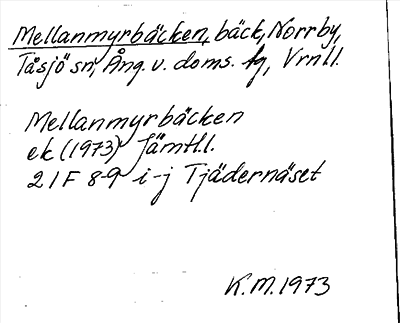 Mellanmyrbäcken, bäck, Norrby,
Tåsjö sn, Ång. v. doms. fg, Vrnll.
Mellanmyrbäcken
ek (1973) Jämtl.l.
21F 8-9 i-j Tjädernäset
K.M. 1973